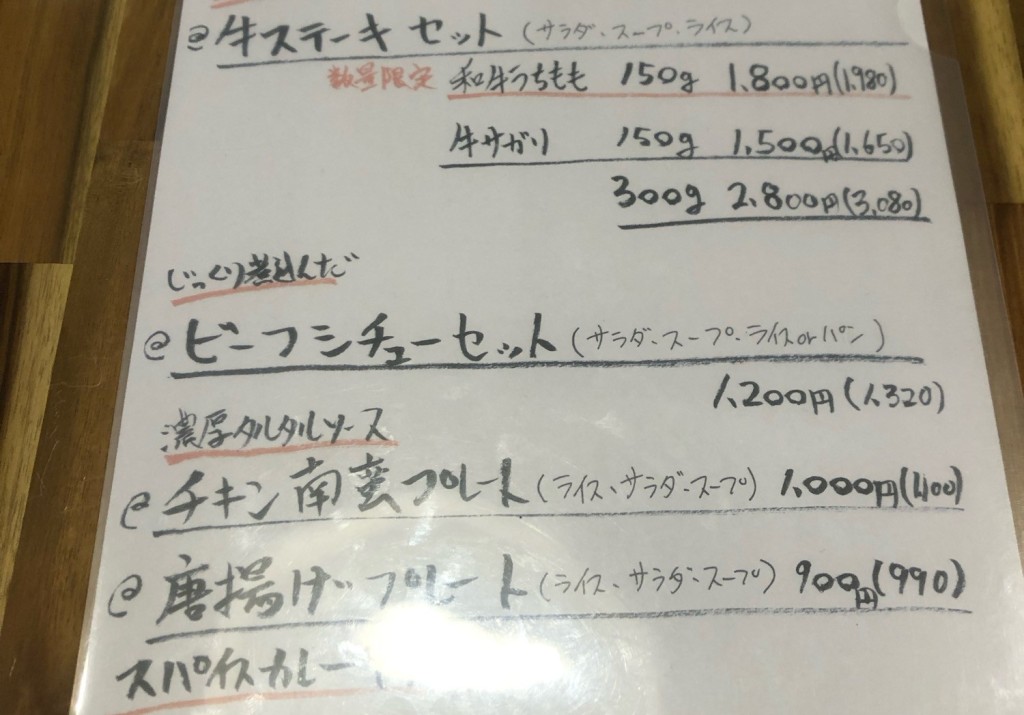 @牛ステーキセット（サラダ・スープ・ライス）
数量限定 和牛うちもも 150g 1,800円(1,980)
牛サガリ 150g 1,500円(1,650)
300g 2,800円(3,080)
じっくり煮込んだ
@ビーフシチューセット（サラダ・スープ・ライスorパン）
1,200円(1,320)
濃厚タルタルソース
@チキン南蛮プレート（ライス、サラダ・スープ）1,000円(1,100)
@唐揚げプレート（ライス、サラダ・スープ）900円(990)
スパイスカレー